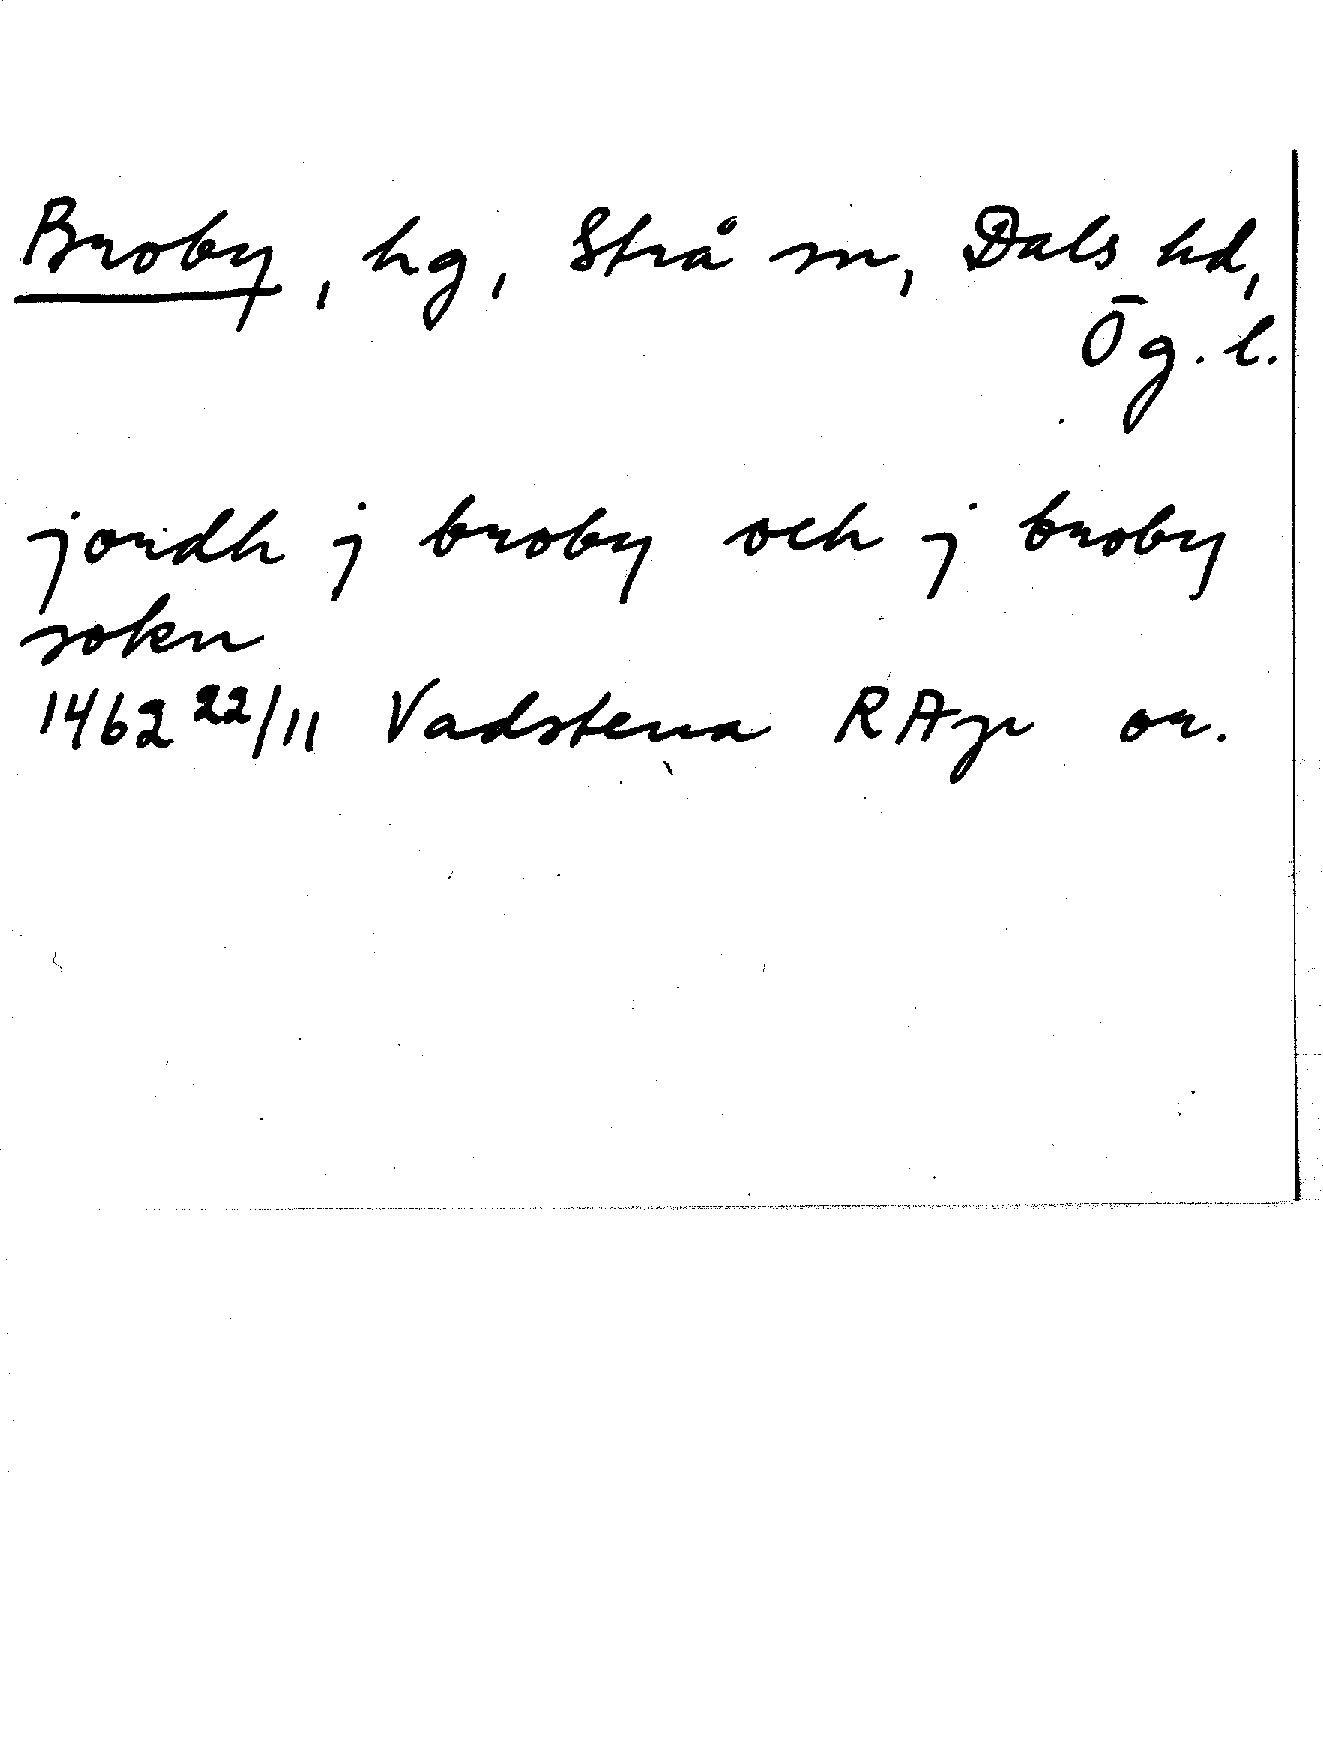 Broby, hg, Strå sn, Dals hd,
Ög. l.
jordh j broby och j broby
sokn
1462 22/11 Vadstena RAp or.